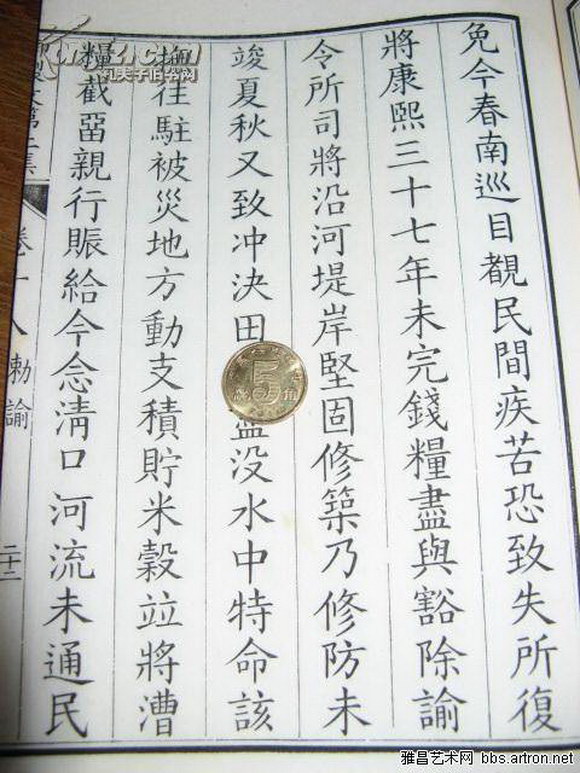 免今春南巡目覩民間疾苦恐致失所復
將康熙三十七年未完錢糧盡與豁除諭
令所司將沿河堤岸堅固修築乃修防未
竣夏秋又致冲決田没水中特命該
撫往駐被災地方動支積貯米穀竝將漕
糧截畱親行賑給今念淸口河流未通民
卷十八
勅諭
二十二
5
角
孔夫子旧书网
雅昌艺术网 bbs.artron.net